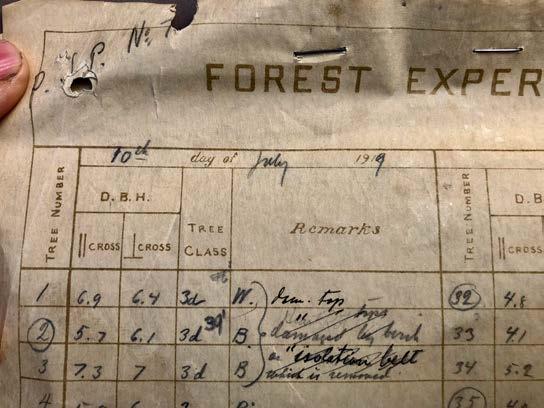 No.
P.
FOREST EXPER
10th day of July 1919
TREE NUMBER D.B.H. TREE CLASS Remarks TREE NUMBER D.B
|| CROSS ⊥ CROSS || CROSS
1 6.9 6.4 3d W. dam. top 32 4.8
2 5.7 6.1 3d 39' B. damaged by birch 33 4.1
3 7.3 7 3d B "isolation belt 34 5.2
which is removed
4 35 4.0